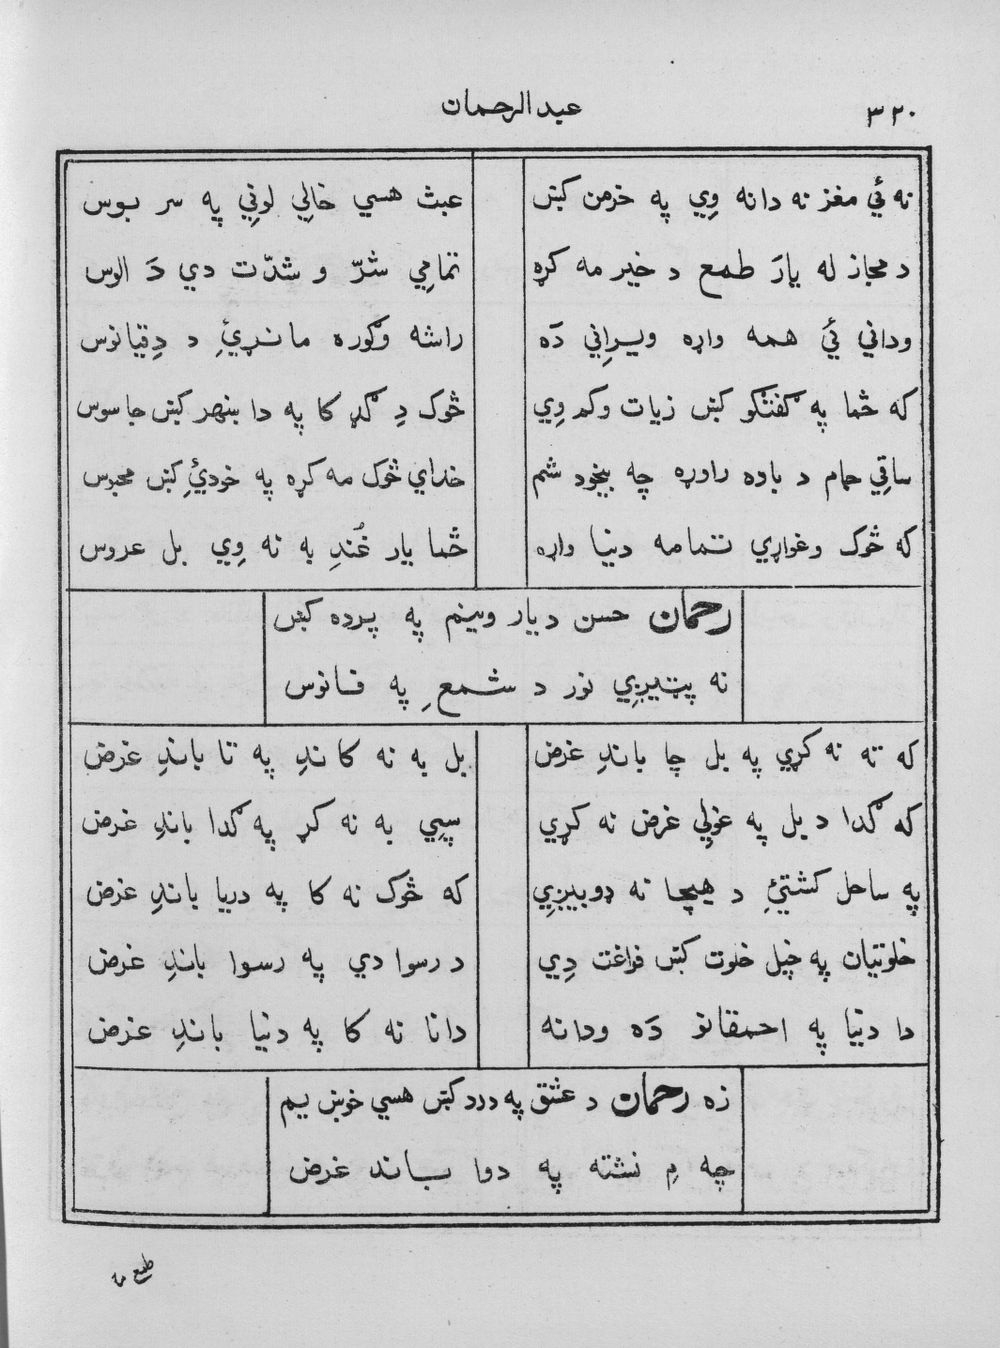 ٣٢٠
عبد الرحمان
نه ئي مغز نه دانه وِي په خرمن کښ
عبث هسي خالِي لونِي په سر بوس
د مجاز له يارَ طمع د خير مه کړه
تمامِي شرّ و شدّت دي دَ الوس
ودانِي ئي همه واړه ويرانِي دَه
راشه وګوره مانړئِ د دِقيانوس
که څما په ګفتګو کښ زيات وکم وِي
څوک دِ ګڼ کا په دا ښهر کښ جاسوس
ساقِي جام د باده راوړه چه بيخود شم
خداي څوک مه کړه په خودیِٔ کښ محبوس
که څوک وغواړي تمامه دنيا واړه
څما يار غُندِ به نه وِي بل عروس
رحمان حسن د يار وينم په پرده کښ
نه پټيږِي نور د شمعِ په فانوس
که ته نه کړي په بل چا باندِ غرض
بل به نه کاندِ په تا باندِ غرض
که ګدا د بل په غولِي غرض نه کړي
سپِي به نه کړ په ګدا باندِ غرض
په ساحل کشتیِٔ د هيچا نه ډوبيږِي
که څوک نه کا په دريا باندِ غرض
خلوتيان په خپل خلوت کښ فراغت دِي
د رسوا دي په رسوا باندِ غرض
دا دنيا په احمقانو دَه ودانه
دانا نه کا په دنيا باندِ غرض
زه رحمان د عشق په درد کښ هسي خوښ يم
چه مِ نشته په دوا باند غرض